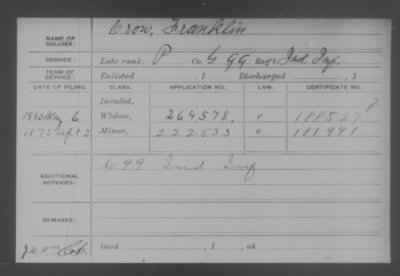 NAME OF SOLDIER: Crow, Franklin
SERVICE: Late rank, P Co. G 99 Reg't Ind. Inf.
TERM OF SERVICE: Enlisted , 1 Discharged , 1
DATE OF FILING. CLASS. APPLICATION NO. LAW. CERTIFICATE NO.
Invalid,
1880 May 6 Widow, 264578. 188527
1875 2 Minor, 222533 181991
ADDITIONAL SERVICES: 99 Ind Inf
REMARKS:
Died , 1 , at